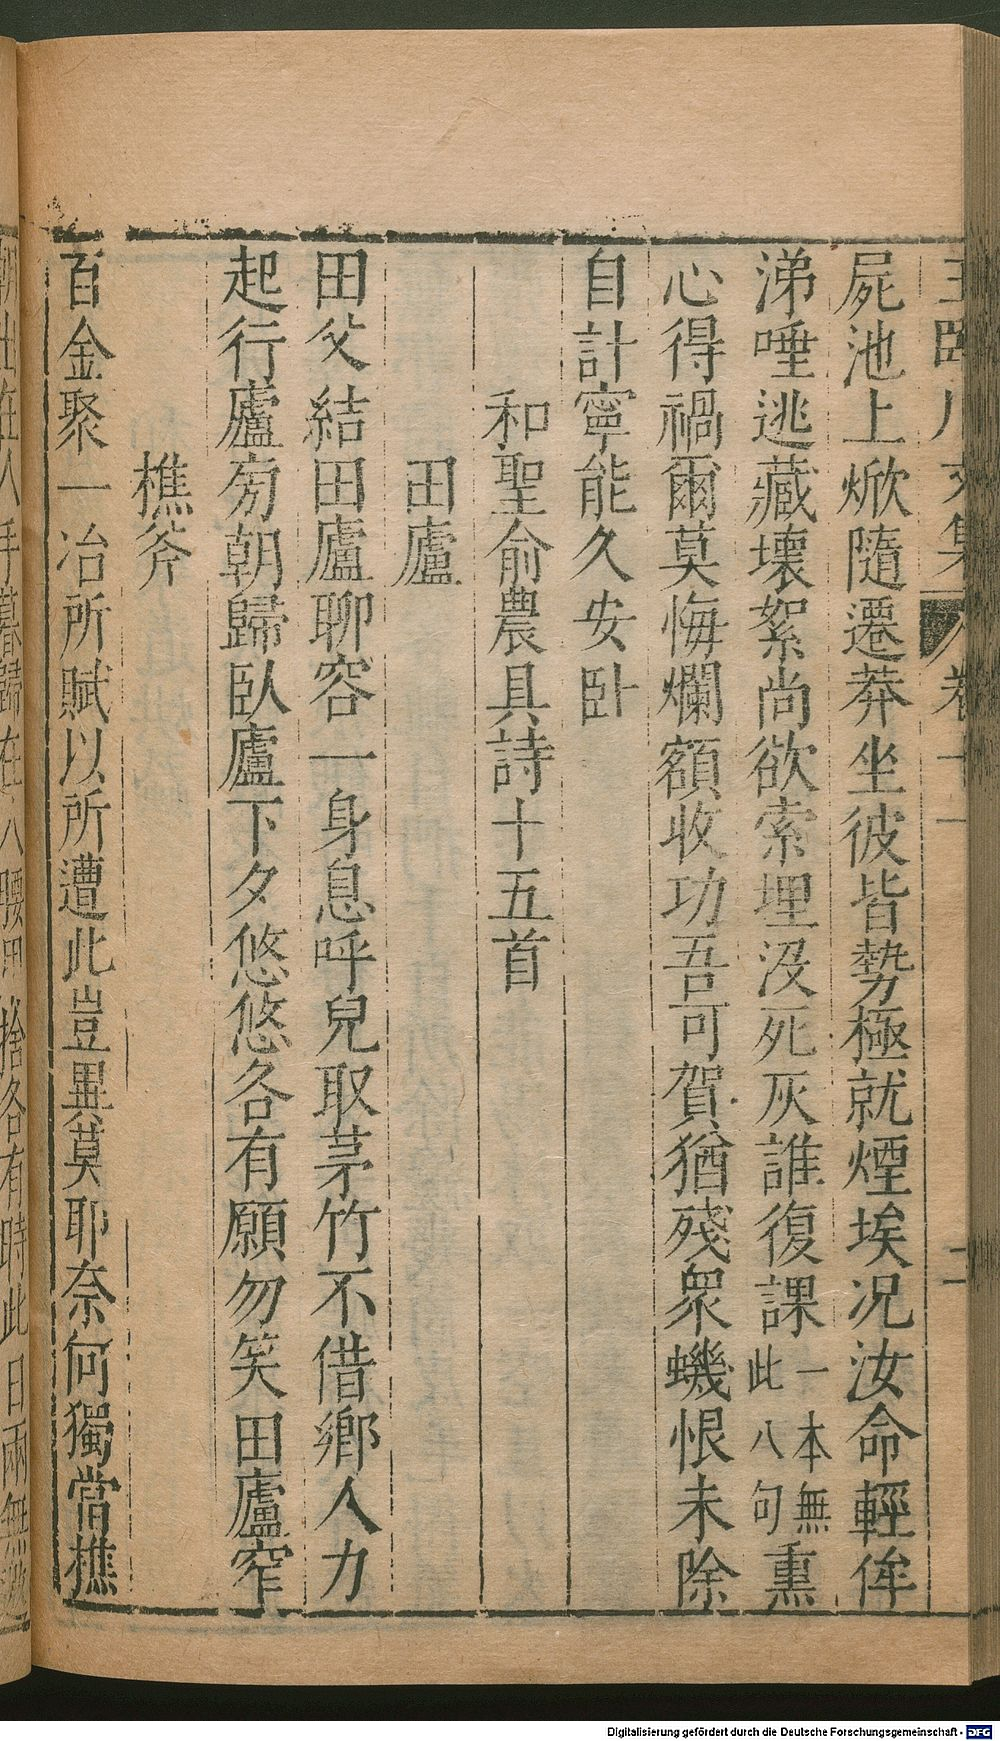 屍池上焮隨遷莽坐彼皆勢極就煙埃况汝命輕侔
涕唾逃藏壞絮尚欲索埋沒死灰誰復課一本無此八句熏
心得禍爾莫悔爛額收功吾可賀猶殘衆蟣恨未除
自計寧能久安卧
和聖俞農具詩十五首
田廬
田父結田廬聊容一身息呼兒取茅竹不借鄉人力
起行廬旁朝歸臥廬下夕悠悠各有願勿笑田廬窄
樵斧
百金聚一冶所賦以所遭此豈異莫耶奈何獨當樵
朝出在人手暮歸在人腰用捨各有時此日兩無
Digitalisierung gefördert durch die Deutsche Forschungsgemeinschaft - DFG